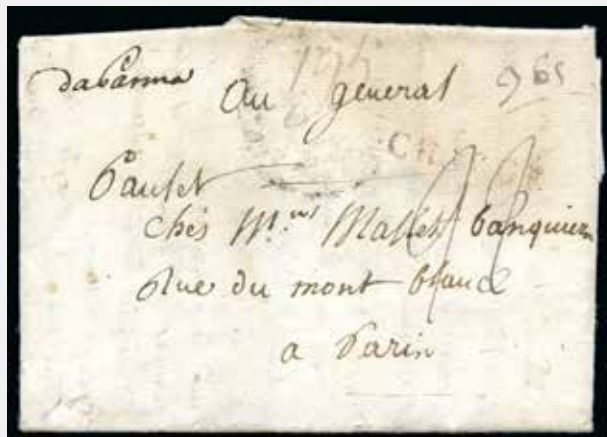 da Parma
Au général
Paulet
chés M.rs Mallet banquiers
Rue du mont blanc
a Paris